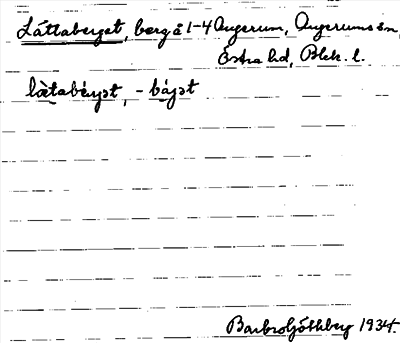 Låttaberget, berg å 1-4 Augerum, Augerums sn,
Östra hd, Blek. l.
là̀tabæ̀rjət, -bǽjət
Barbro Göthberg 1934.